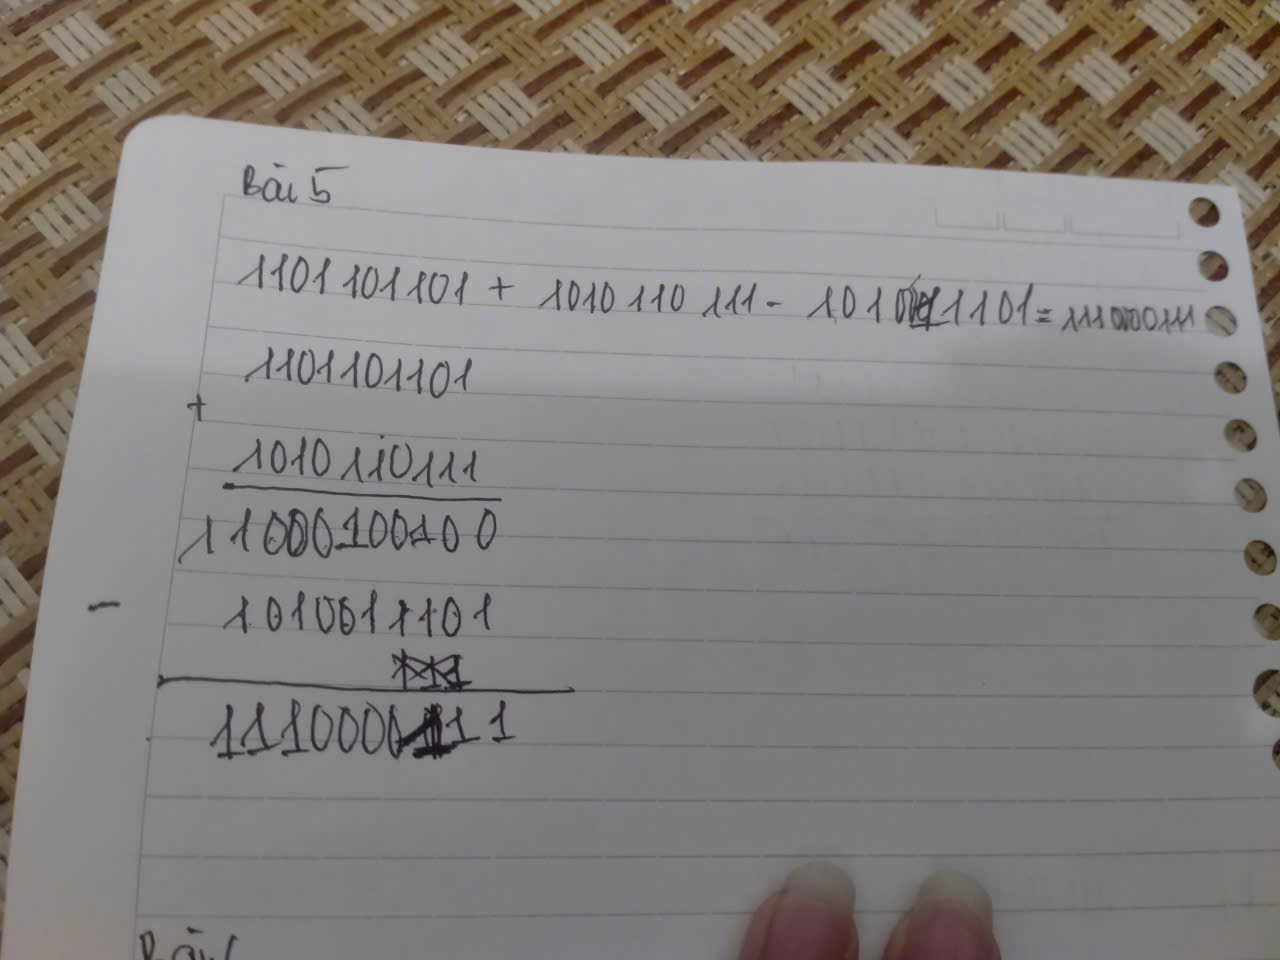 Bài 5
1101101101 + 1010110111 - 1010011101 = 1110000111
1101101101
+
1010110111
11000100100
-
1010011101
1110000111
Bài